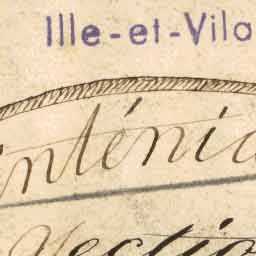 Ille-et-Vila
inténia
Sectio